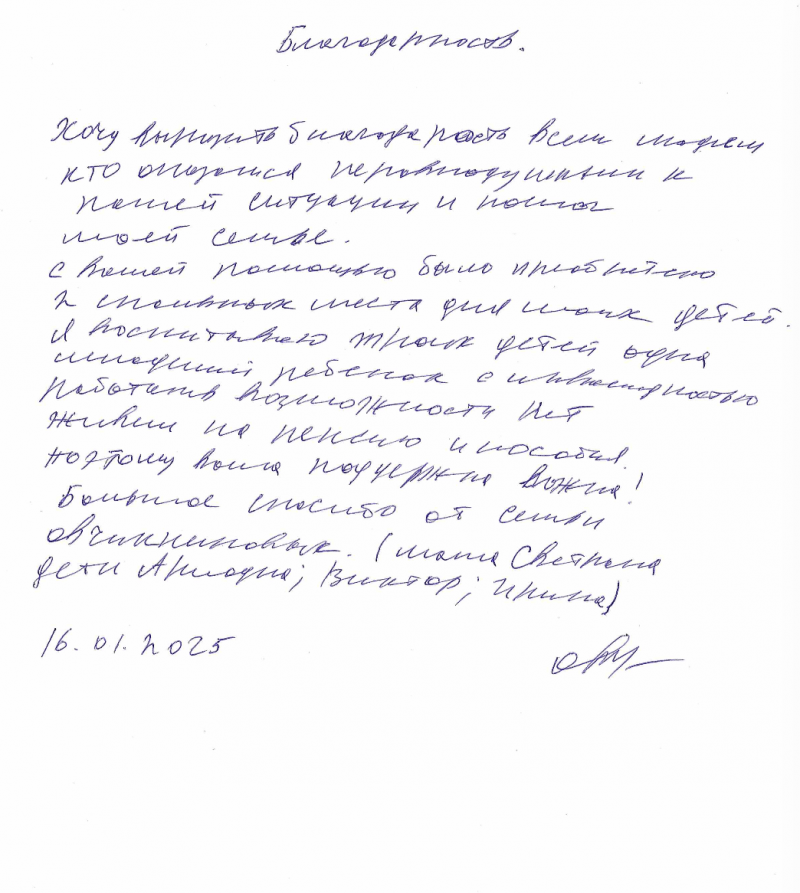 Благодарность.
Хочу выразить благодарость всем людям
кто оказался неравнодушным к
нашей ситуации и помог
моей семье.
С вашей помощью было приобретено
2 спальных места для моих детей.
Я воспитываю троих детей одна
младший ребенок с инвалидностью
Работать возможности нет
живем на пенсию и пособия.
поэтому ваша поддержка важна!
Большое спасибо от семьи
(мама Светлана
дети Ариадна; Виктор; Ирина)
16.01.2025